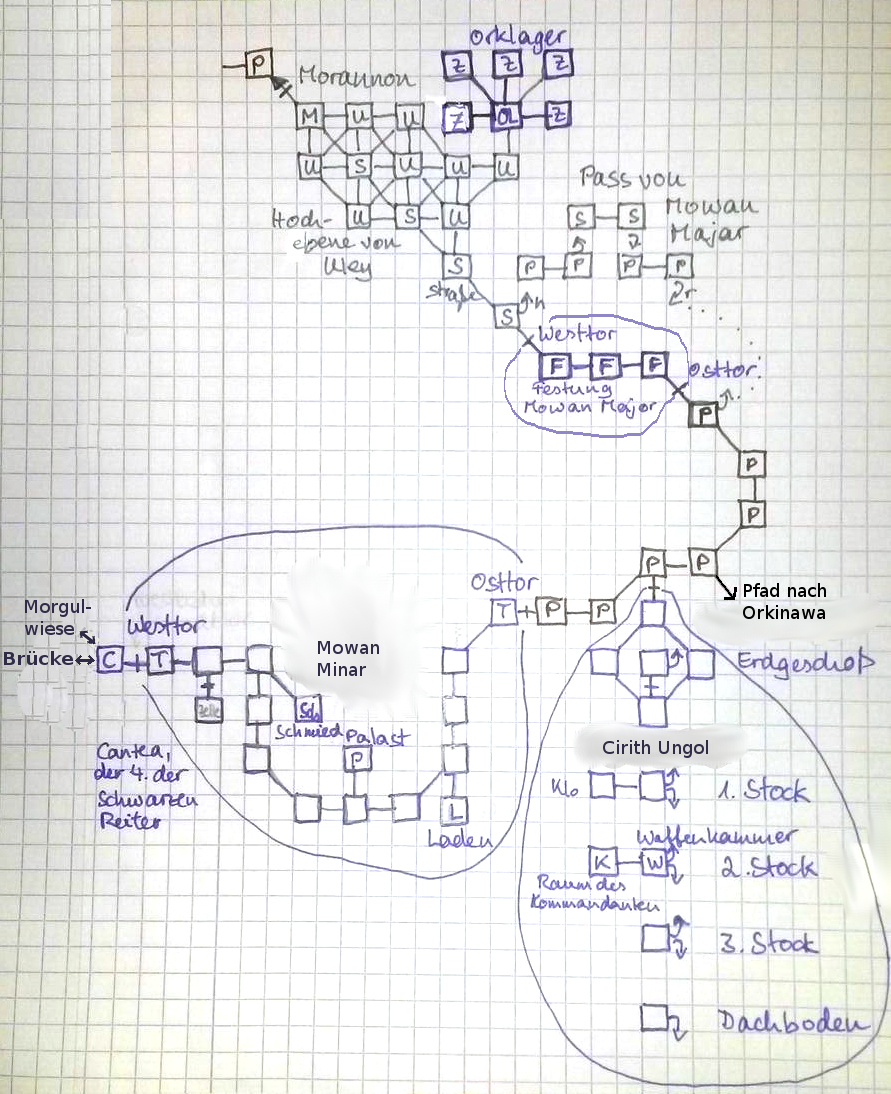 Orklager
P
Z Z Z
Morannon
M U U
Z OL Z
U S U U U
Pass von
Mowan
Majar
Hoch-
ebene von
Wey
U S U
S S
S
Straße
P P
P P
r
S
n
Westtor
F F F
Festung
Mowan Major
Osttor
P
P
P
P P
Pfad nach
Orkinawa
Osttor
T P P
Morgul-
wiese
Westtor
Brücke
C T
Mowan
Minar
Erdgeschoß
Zelle
Sch
Schmied
Palast
P
Cirith Ungol
Cantea,
der 4. der
Schwarzen
Reiter
Klo
1. Stock
L
Laden
Waffenkammer
K W
2. Stock
Raum des
Kommandanten
3. Stock
Dachboden